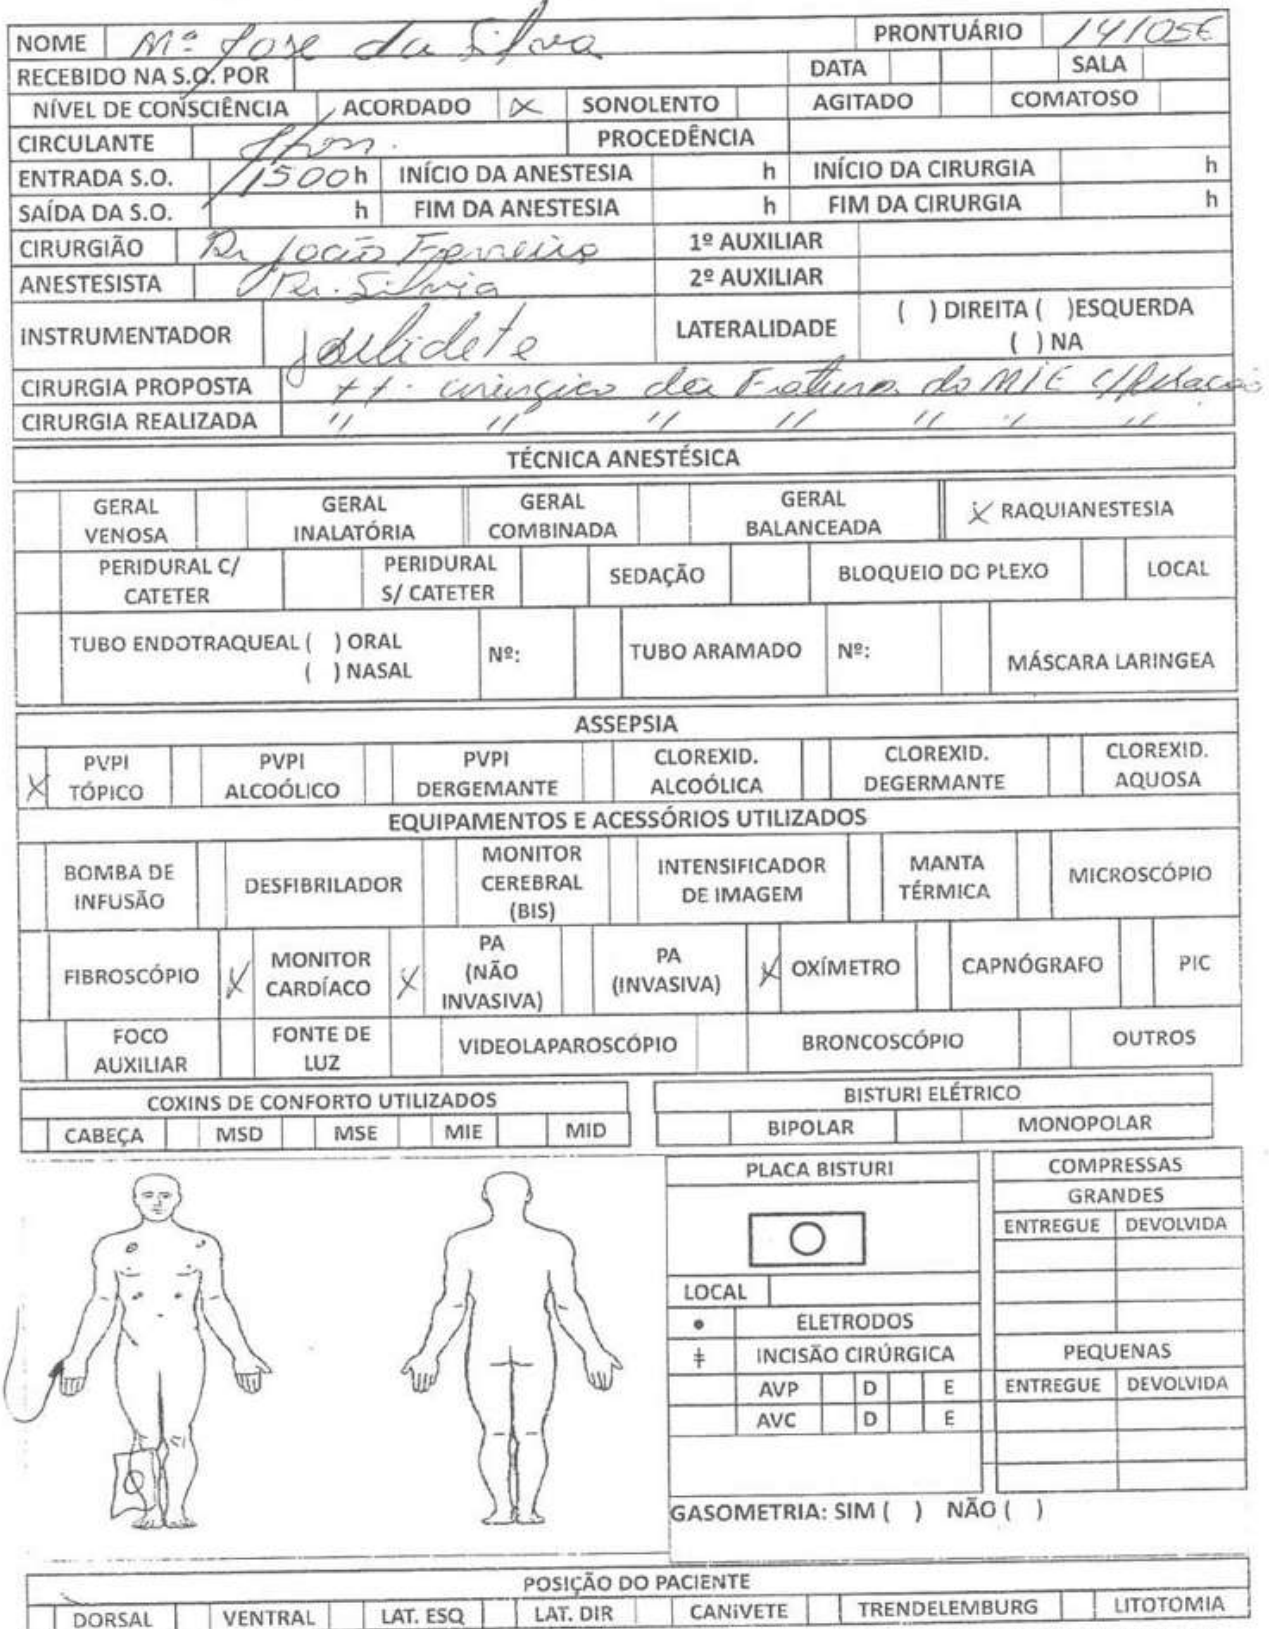 NOME Mª Jose da Silva PRONTUÁRIO 141056
RECEBIDO NA S.O. POR DATA SALA
NÍVEL DE CONSCIÊNCIA ACORDADO X SONOLENTO AGITADO COMATOSO
CIRCULANTE PROCEDÊNCIA
ENTRADA S.O. 1500 h INÍCIO DA ANESTESIA h INÍCIO DA CIRURGIA h
SAÍDA DA S.O. h FIM DA ANESTESIA h FIM DA CIRURGIA h
CIRURGIÃO Dr João Ferreira 1º AUXILIAR
ANESTESISTA Dr. Silvia 2º AUXILIAR
INSTRUMENTADOR LATERALIDADE ( ) DIREITA ( )ESQUERDA
( ) NA
CIRURGIA PROPOSTA tt. cirurgico da Fratura do MIE c/
CIRURGIA REALIZADA " " " " " " "
TÉCNICA ANESTÉSICA
GERAL VENOSA GERAL INALATÓRIA GERAL COMBINADA GERAL BALANCEADA X RAQUIANESTESIA
PERIDURAL C/ CATETER PERIDURAL S/ CATETER SEDAÇÃO BLOQUEIO DO PLEXO LOCAL
TUBO ENDOTRAQUEAL ( ) ORAL Nº: TUBO ARAMADO Nº: MÁSCARA LARINGEA
( ) NASAL
ASSEPSIA
X PVPI TÓPICO PVPI ALCOÓLICO PVPI DERGEMANTE CLOREXID. ALCOÓLICA CLOREXID. DEGERMANTE CLOREXID. AQUOSA
EQUIPAMENTOS E ACESSÓRIOS UTILIZADOS
BOMBA DE INFUSÃO DESFIBRILADOR MONITOR CEREBRAL (BIS) INTENSIFICADOR DE IMAGEM MANTA TÉRMICA MICROSCÓPIO
FIBROSCÓPIO X MONITOR CARDÍACO X PA (NÃO INVASIVA) PA (INVASIVA) X OXÍMETRO CAPNÓGRAFO PIC
FOCO AUXILIAR FONTE DE LUZ VIDEOLAPAROSCÓPIO BRONCOSCÓPIO OUTROS
COXINS DE CONFORTO UTILIZADOS BISTURI ELÉTRICO
CABEÇA MSD MSE MIE MID BIPOLAR MONOPOLAR
PLACA BISTURI COMPRESSAS
GRANDES
ENTREGUE DEVOLVIDA
LOCAL
ELETRODOS
INCISÃO CIRÚRGICA PEQUENAS
AVP D E ENTREGUE DEVOLVIDA
AVC D E
GASOMETRIA: SIM ( ) NÃO ( )
POSIÇÃO DO PACIENTE
DORSAL VENTRAL LAT. ESQ LAT. DIR CANiVETE TRENDELEMBURG LITOTOMIA